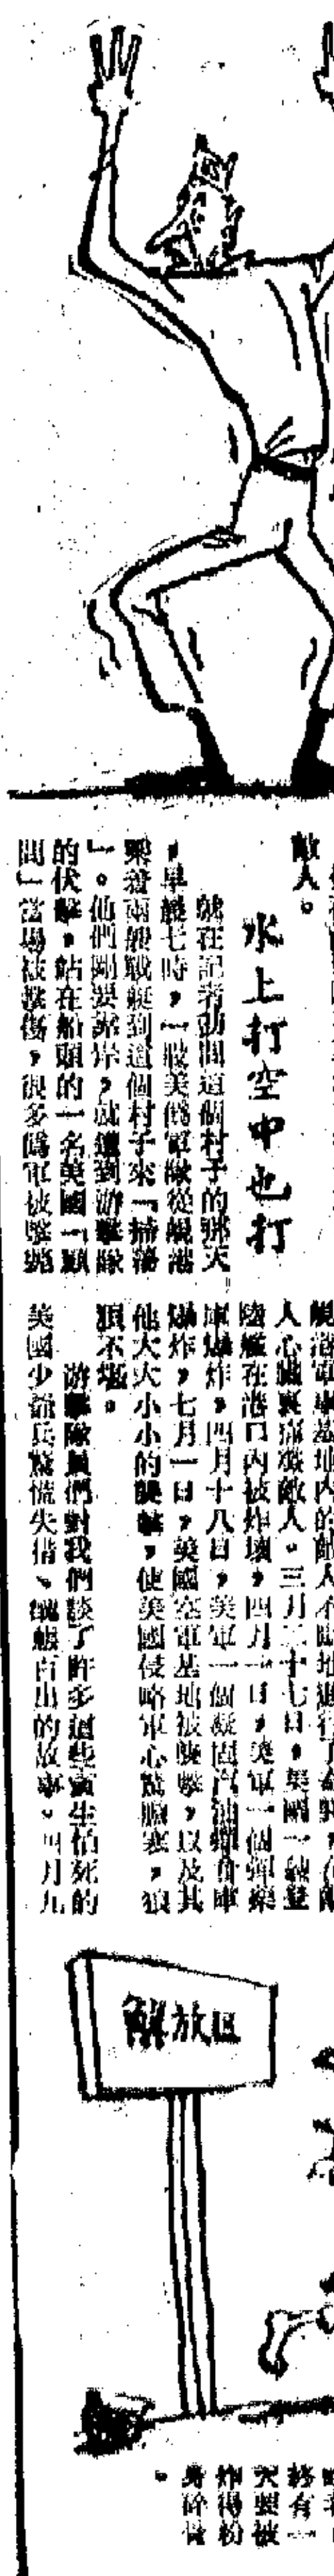 敵人。
水上打空中也打
就在記者訪問這個村子的那天
，早晨七時，一股美偽軍儆從峴港
乘着兩艘戰艇到這個村子來「掃蕩
」。他們剛要靠岸，就遭到游擊隊
的伏擊，站在船頭的一名美國「顧
問」當場被擊傷，很多偽軍被擊斃
峴港軍事基地內的敵人不斷地進行了
人心臟裏痛殲敵人。三月二十七日，美國一艘登
陸艦在港口內被炸壞，四月一日，美軍一個彈藥
庫爆炸，四月十八日，美軍一個凝固汽油彈倉庫
爆炸，七月一日，美國空軍基地被襲擊，以及其
他大大小小的襲擊，使美國侵略軍心驚膽寒，狼
狽不堪。
游擊隊員們對我們談了許多這些貪生怕死的
美國少爺兵驚慌失措、醜態百出的故事。四月九
解放區
終有一
天要被
炸得粉
身碎骨
。